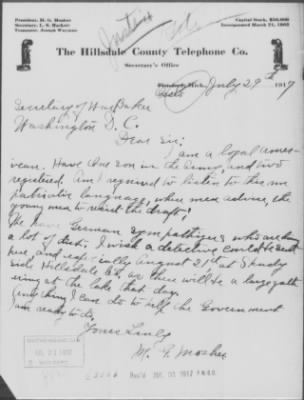 President, H. G. Mosher
Secretary, L. S. Hackett
Treasurer, Joseph Wayman
Capital Stock, $50,000
Incorporated March 21, 1903
Justice
The Hillsdale County Telephone Co.
Secretary's Office
July 29th 1917
Secretary of War Baker
Washington D. C.
Dear Sir;
I am a loyal amer-
ican. Have one son in the army and two
registered. Am I required to listen to this un
patriotic language, when men advise, the
young men to resist the draft?
We have German sympathizers who are doing
a lot of dirt. I wish a detective could be sent
here, and especially August 21st at
side Hillsdale Co., as there will be a large gath
ering at the lake that day.
Anything I can do to help the Government
I am ready to do,
Yours Truly
M. F. Mosher
JUL 31 1917
Rec'd
1917